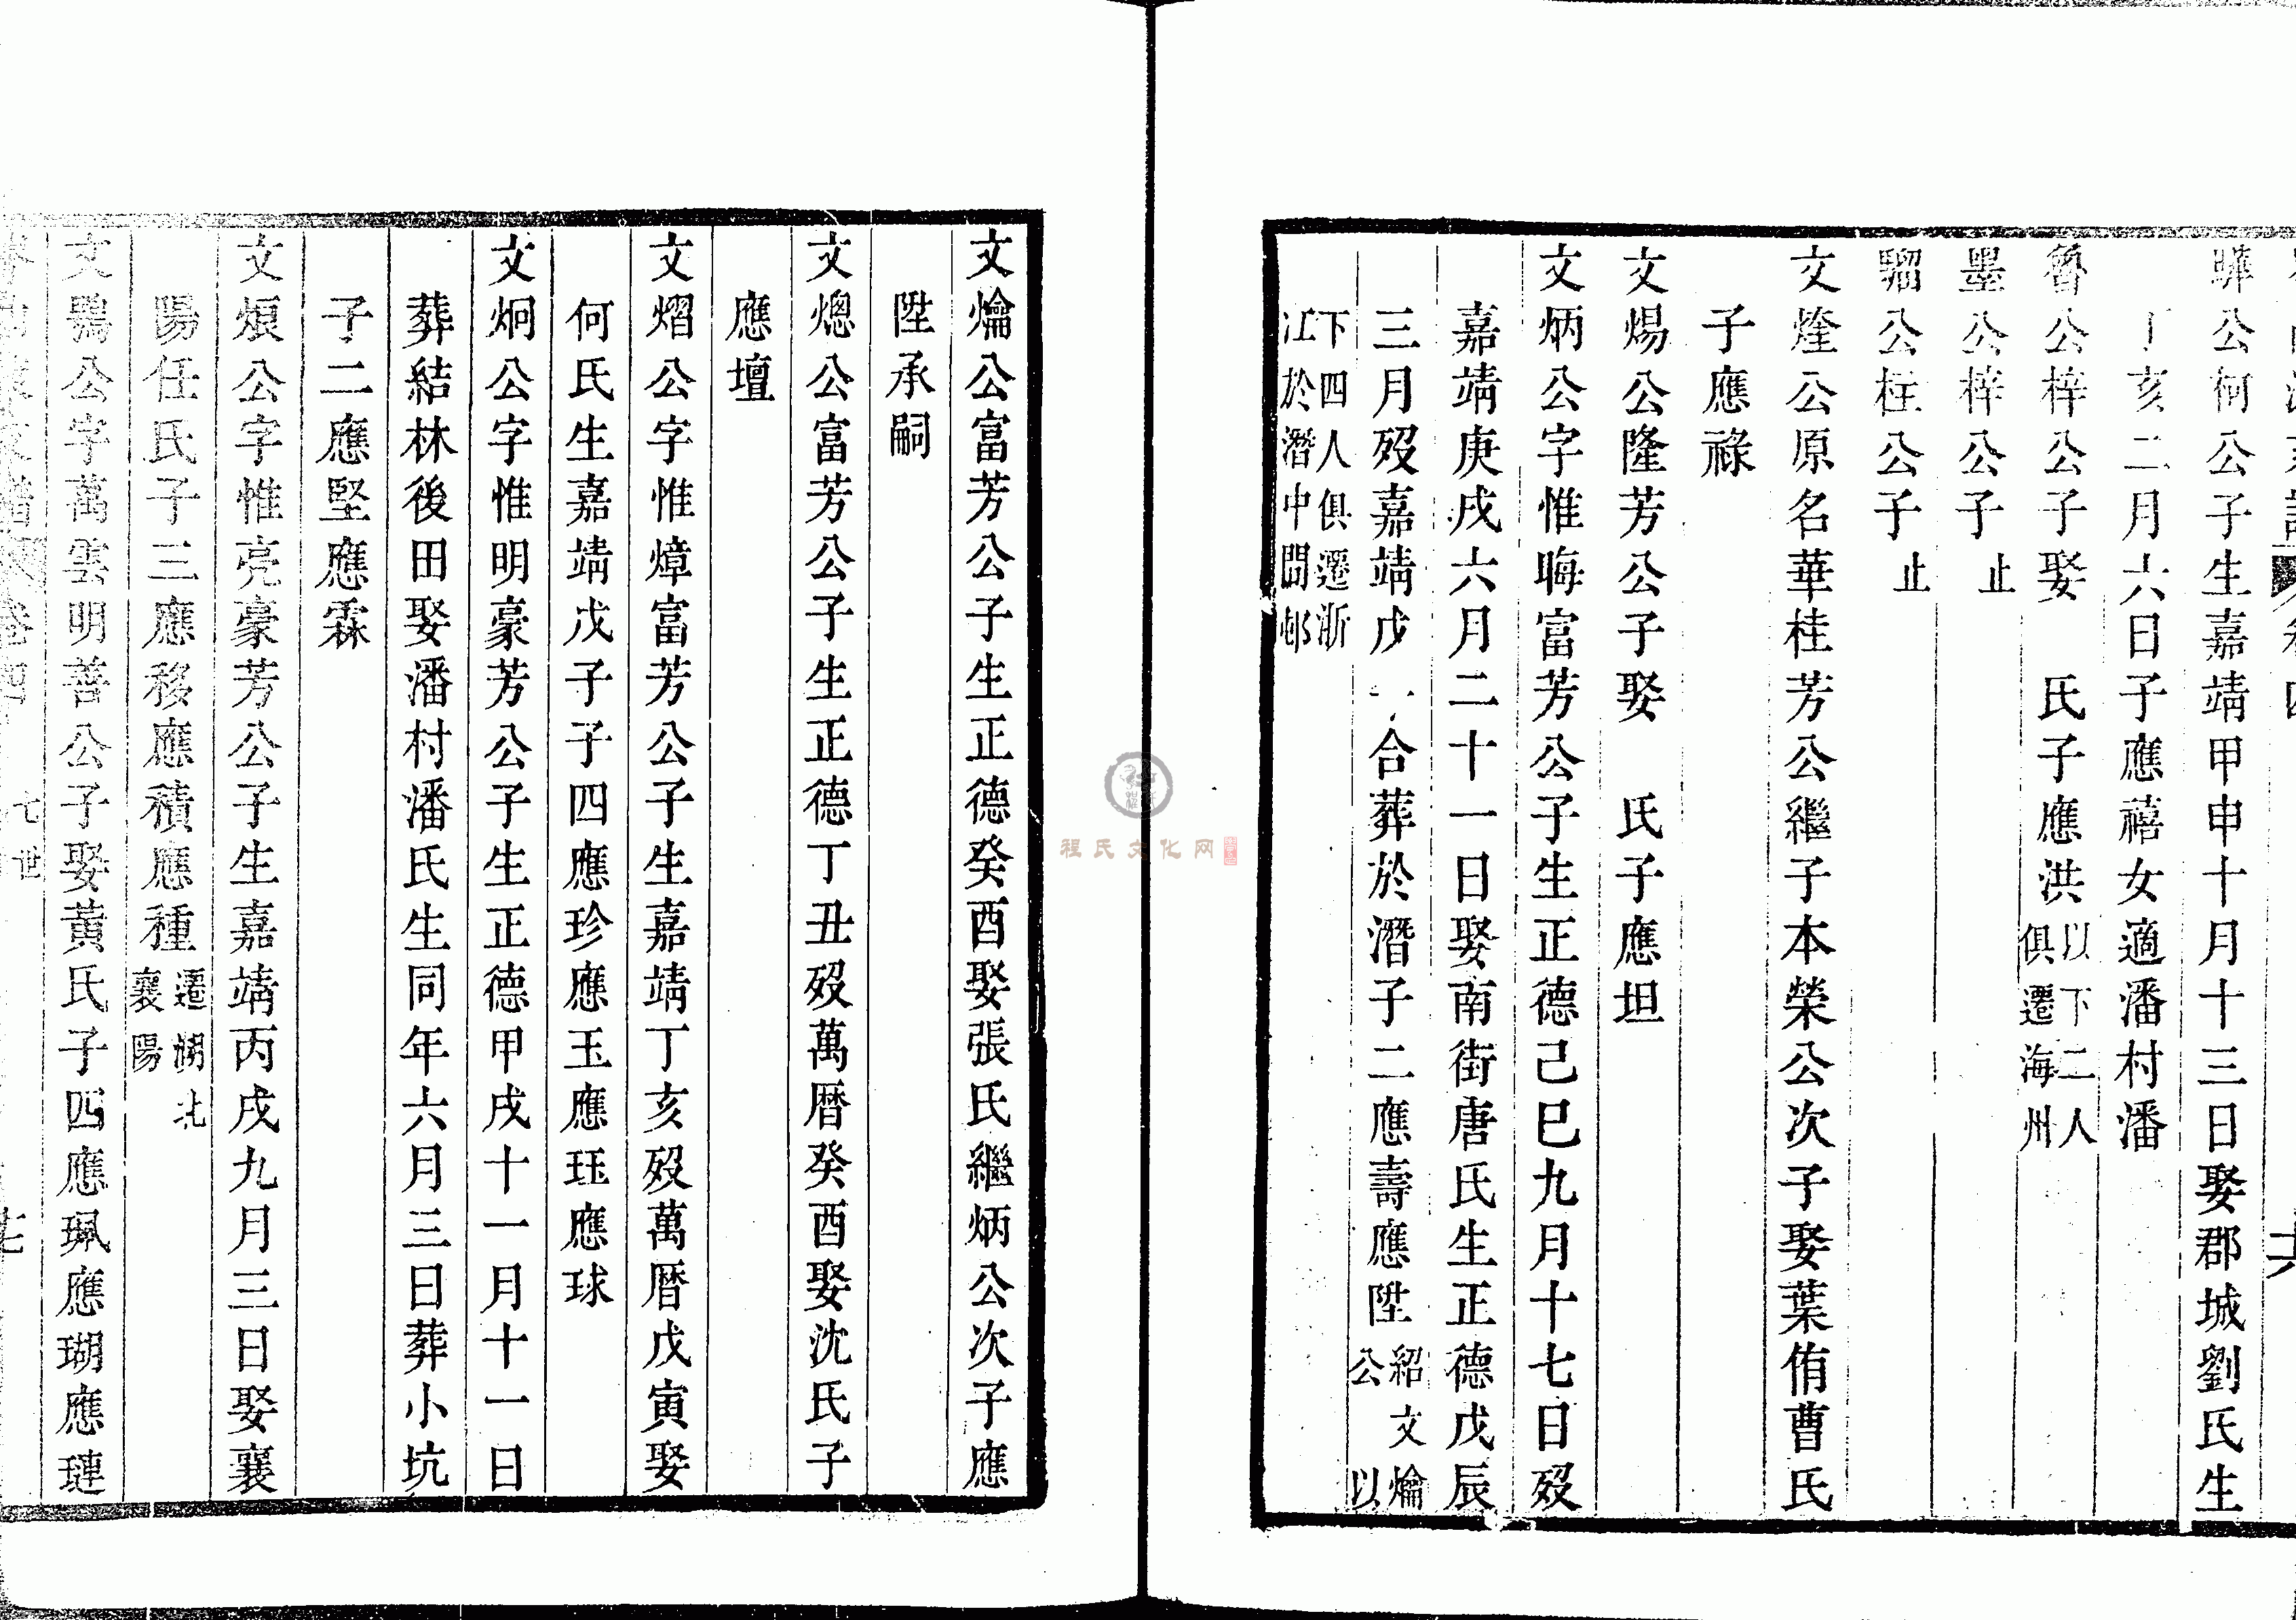 公柯公子生嘉靖甲申十月十三日娶郡城劉氏生
亥二月六日子應禧女適潘村潘
魯公梓公子娶 氏子應洪以下二人俱遷海州
墨公梓公子止
騮公柱公子止
文煃公原名華桂芳公繼子本榮公次子娶葉侑曹氏
子應祿
文煬公隆芳公子娶 氏子應坦
文炳公字惟晦富芳公子生正德己巳九月十七日歿
嘉靖庚戌六月二十一日娶南街唐氏生正德戊辰
三月歿嘉靖戊 合葬於潛子二應壽應陞紹文爚公以
下四人俱遷浙江於潛中閭邨
文爚公富芳公子生正德癸酉娶張氏繼炳公次子應
陞承嗣
文熜公富芳公子生正德丁丑歿萬曆癸酉娶沈氏子
應壇
文熠公字惟煒富芳公子生嘉靖丁亥歿萬曆戊寅娶
何氏生嘉靖戊子子四應珍應玉應珏應球
文炯公字惟明豪芳公子生正德甲戌十一月十一日
葬結林後田娶潘村潘氏生同年六月三日葬小坑
子二應堅應霖
文烺公字惟亮豪芳公子生嘉靖丙戌九月三日娶襄
陽任氏子三應移應積應種遷湖北襄陽
文鶚公字萬雲明善公子娶黃氏子四應珮應瑚應璉
卷四
七世
程氏文化网